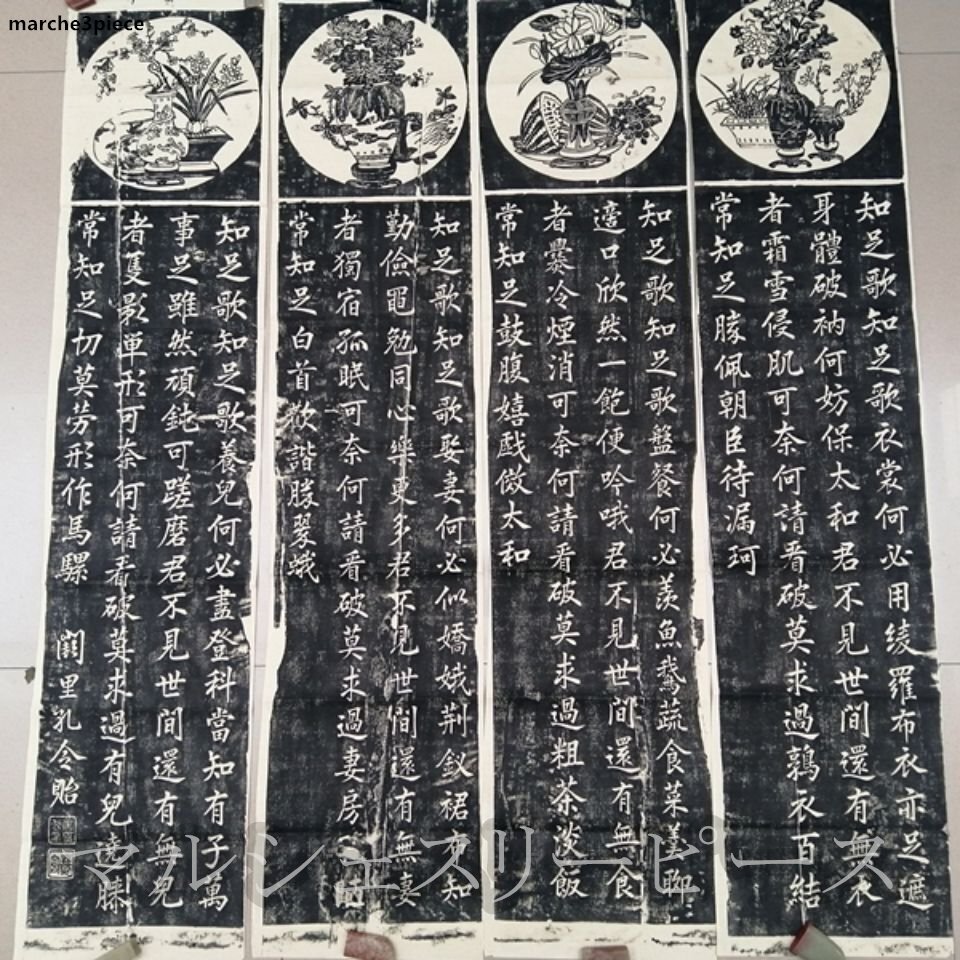 marche3piece
知足歌知足歌衣裳何必用綾羅布衣亦足遮
身體破衲何妨保太和君不見世間還有無衣
者霜雪侵肌可奈何請看破莫求過鶉衣百結
常知足勝佩朝臣待漏珂
知足歌知足歌盤餐何必羡魚鵝蔬食菜羹聊
適口欣然一飽便吟哦君不見世間還有無食
者爨冷煙消可奈何請看破莫求過粗茶淡飯
常知足鼓腹嬉戲傚太和
知足歌知足歌娶妻何必似嬌娥荆釵裙布知
勤儉黽勉同心樂更多君不見世間還有無妻
者獨宿孤眠可奈何請看破莫求過妻房
常知足白首歡諧勝翠蛾
知足歌知足歌養兒何必盡登科當知有子萬
事足雖然頑鈍可蹉磨君不見世間還有無兒
者隻影單形可奈何請看破莫求過有兒遶膝
常知足切莫劳形作馬騾
闕里孔令貽
マルシェスリーピース